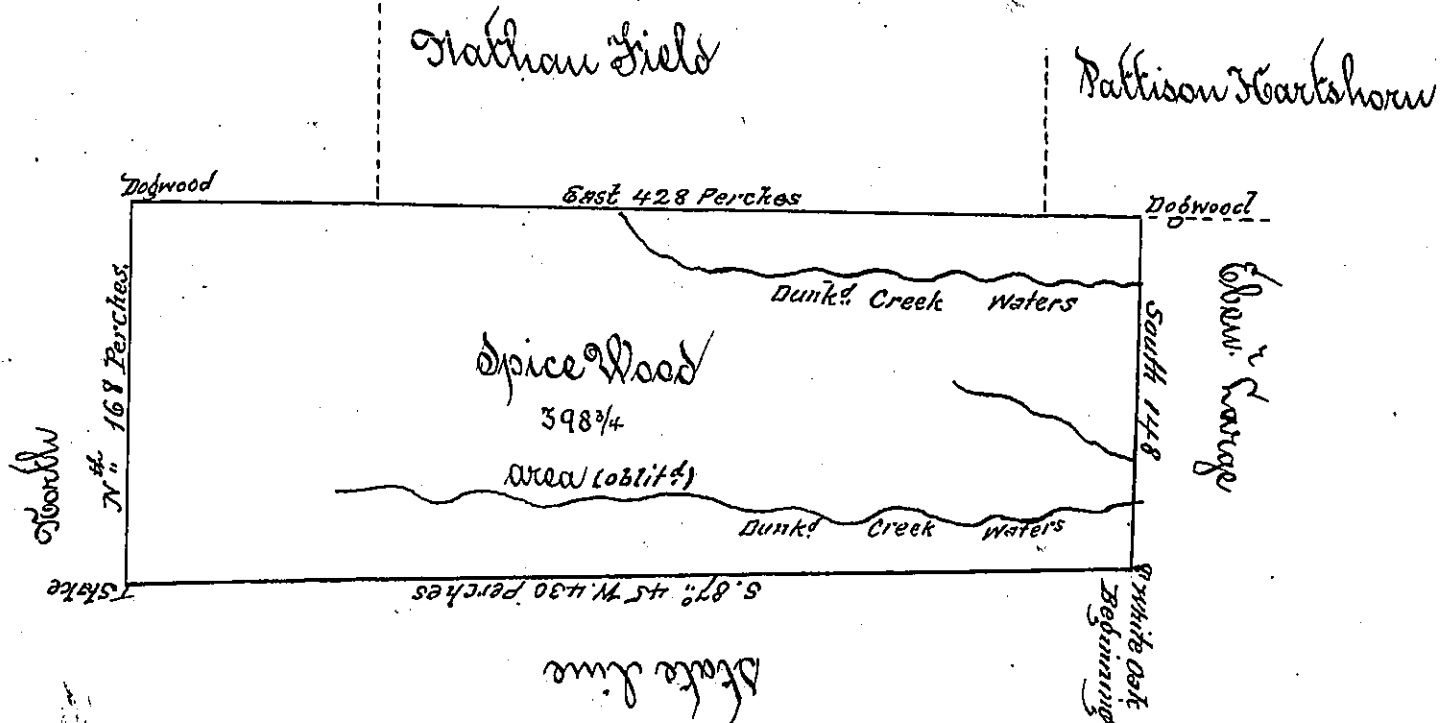 Nathan Field
Pattison Hartshorn
Dogwood
East 428 Perches
Dogwood
Dunkd. Creek Waters
Nth" 168 Perches.
North
Spice Wood
398 3/4
area (oblitd.)
South 148
Eben'r
Dunkd. Creek Waters
Stake
S. 87°" 45 W. 430 Perches
White Oak
Beginning
State Line